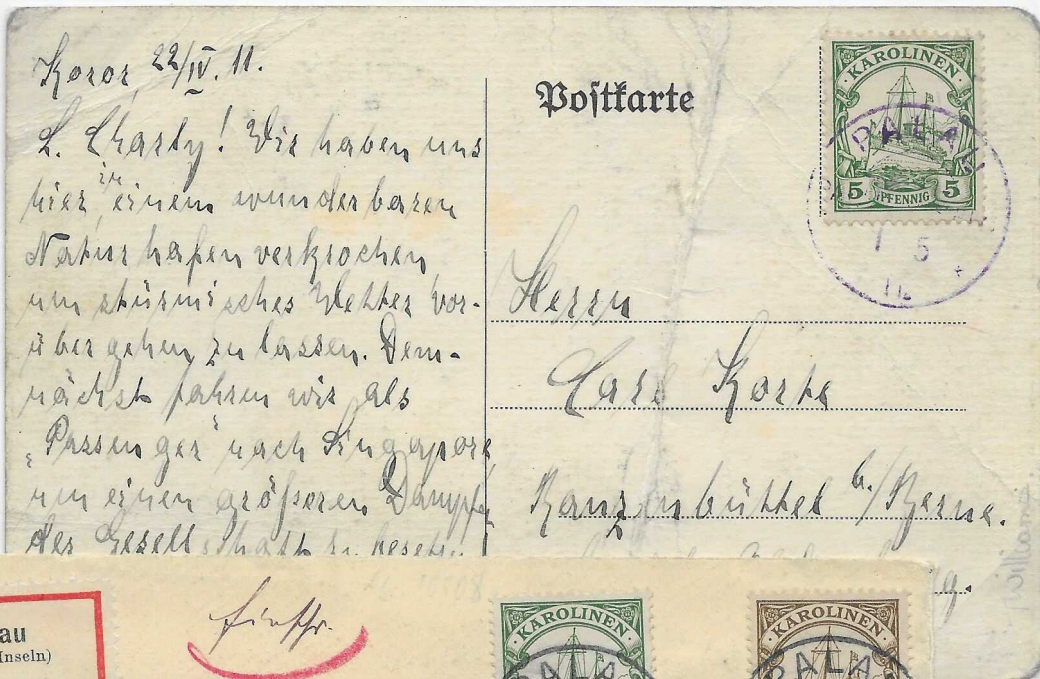 Koror, 22/IV. 11.
L. Charly! Wir haben uns
hier in einem wunderbaren
Naturhafen verkrochen,
um stürmisches Wetter vor-
über gehen zu lassen. Dem-
nächst fahren wir als
"Passenger" nach Singapore,
um einen größeren Dampfer
der Gesellschaft zu
Postkarte
KAROLINEN
5 PFENNIG 5
PALAU
1 5
11
Herrn
Carl Korte
Ranzenbüttel b./Berne.
g.
Williams
au
Inseln)
Einschr.
KAROLINEN
PALA
KAROLINEN
PALA